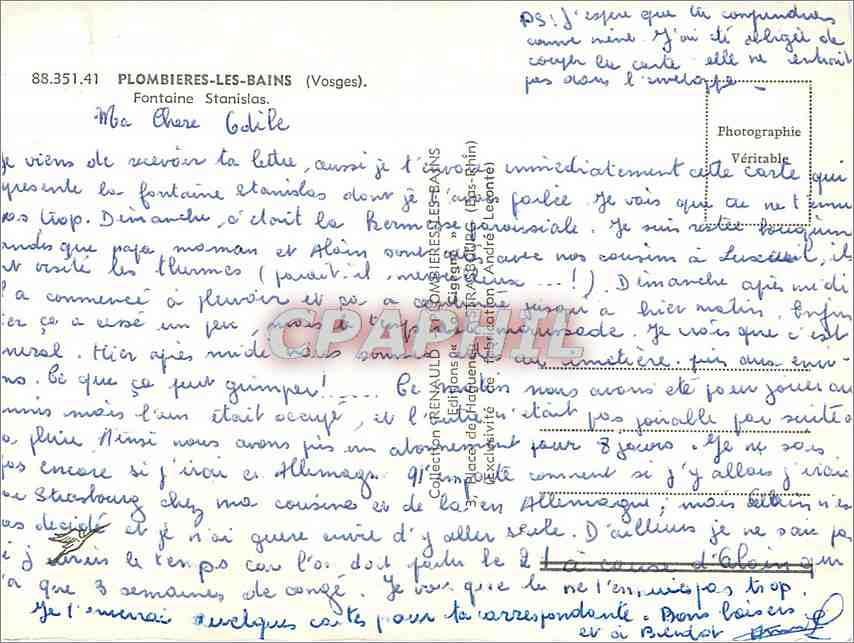 PS: J'espère que tu comprendras
quand même. J'ai été obligée de
couper la carte elle ne rentrait
pas dans l'enveloppe
88.351.41 PLOMBIERES-LES-BAINS (Vosges).
Fontaine Stanislas.
Ma Chere Odile
Photographie
Véritable
je viens de recevoir ta lettre, aussi je t'envoie immédiatement cette carte qui
présente la fontaine Stanislas dont je t'avais parlée. Je vois que tu ne t'ennu
pas trop. Dimanche, c'était la Kermesse paroissiale. Je suis restée
andis que papa maman et Alain sont avec nos cousins à Luxeuil, ils
nt visité les thermes (parait-il, merveilleux ...!). Dimanche après midi
l a commencé à pleuvoir et ça a continué jusqu'à hier matin. Enfin
ier ça a cessé un peu, mais le temps est maussade. Je crois que c'est
néral. Hier après midi nous sommes au cimetière puis aux envi-
ns. Ce que ça peut grimper! ..... Ce matin nous avons été pour jouer au
nnis mais l'un était occupé, et l'autre n'était pas jouable par suite d
a pluie Ainsi nous avons pris un abonnement pour 8 jours. Je ne sais
pas encore si j'irai en Allemagne. N'importe comment si j'y allais j'irais
Strasbourg chez ma cousine et de là en Allemagne; mais Alain n'est
as décidé et je n'ai guère envie d'y aller seule. D'ailleurs je ne sais pas
i j'aurais le temps car l'on doit partir le 21 à cause d'Alain qui
'a que 3 semaines de congé. Je vois que tu ne t'ennuies pas trop.
Je t'enverrai quelques cartes pour ta correspondante. Bons baisers
et à Bientôt
Collection RENAULD PLOMBIERES-LES-BAINS
Editions « La Cigogne »
3, Place de Haguenau STRASBOURG (Bas-Rhin)
(Exclusivité de fabrication André Leconte)
CPAPHIL